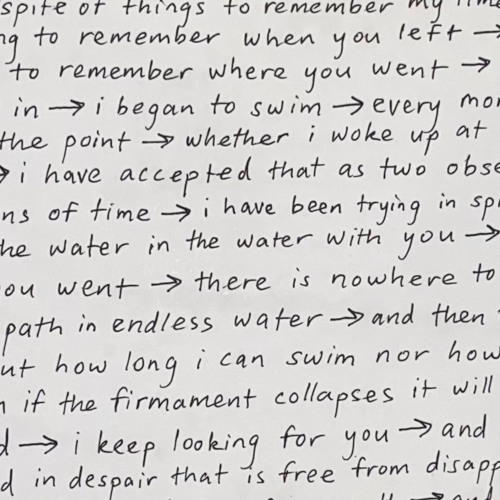 spite of things to remember my time
ng to remember when you left →
to remember where you went →
in → i began to swim → every mor
the point → whether i woke up at
→ i have accepted that as two obse
ns of time → i have been trying in spi
he water in the water with you →
ou went → there is nowhere to
path in endless water → and then
ut how long i can swim nor how
if the firmament collapses it will
d → i keep looking for you → and
d in despair that is free from disapp